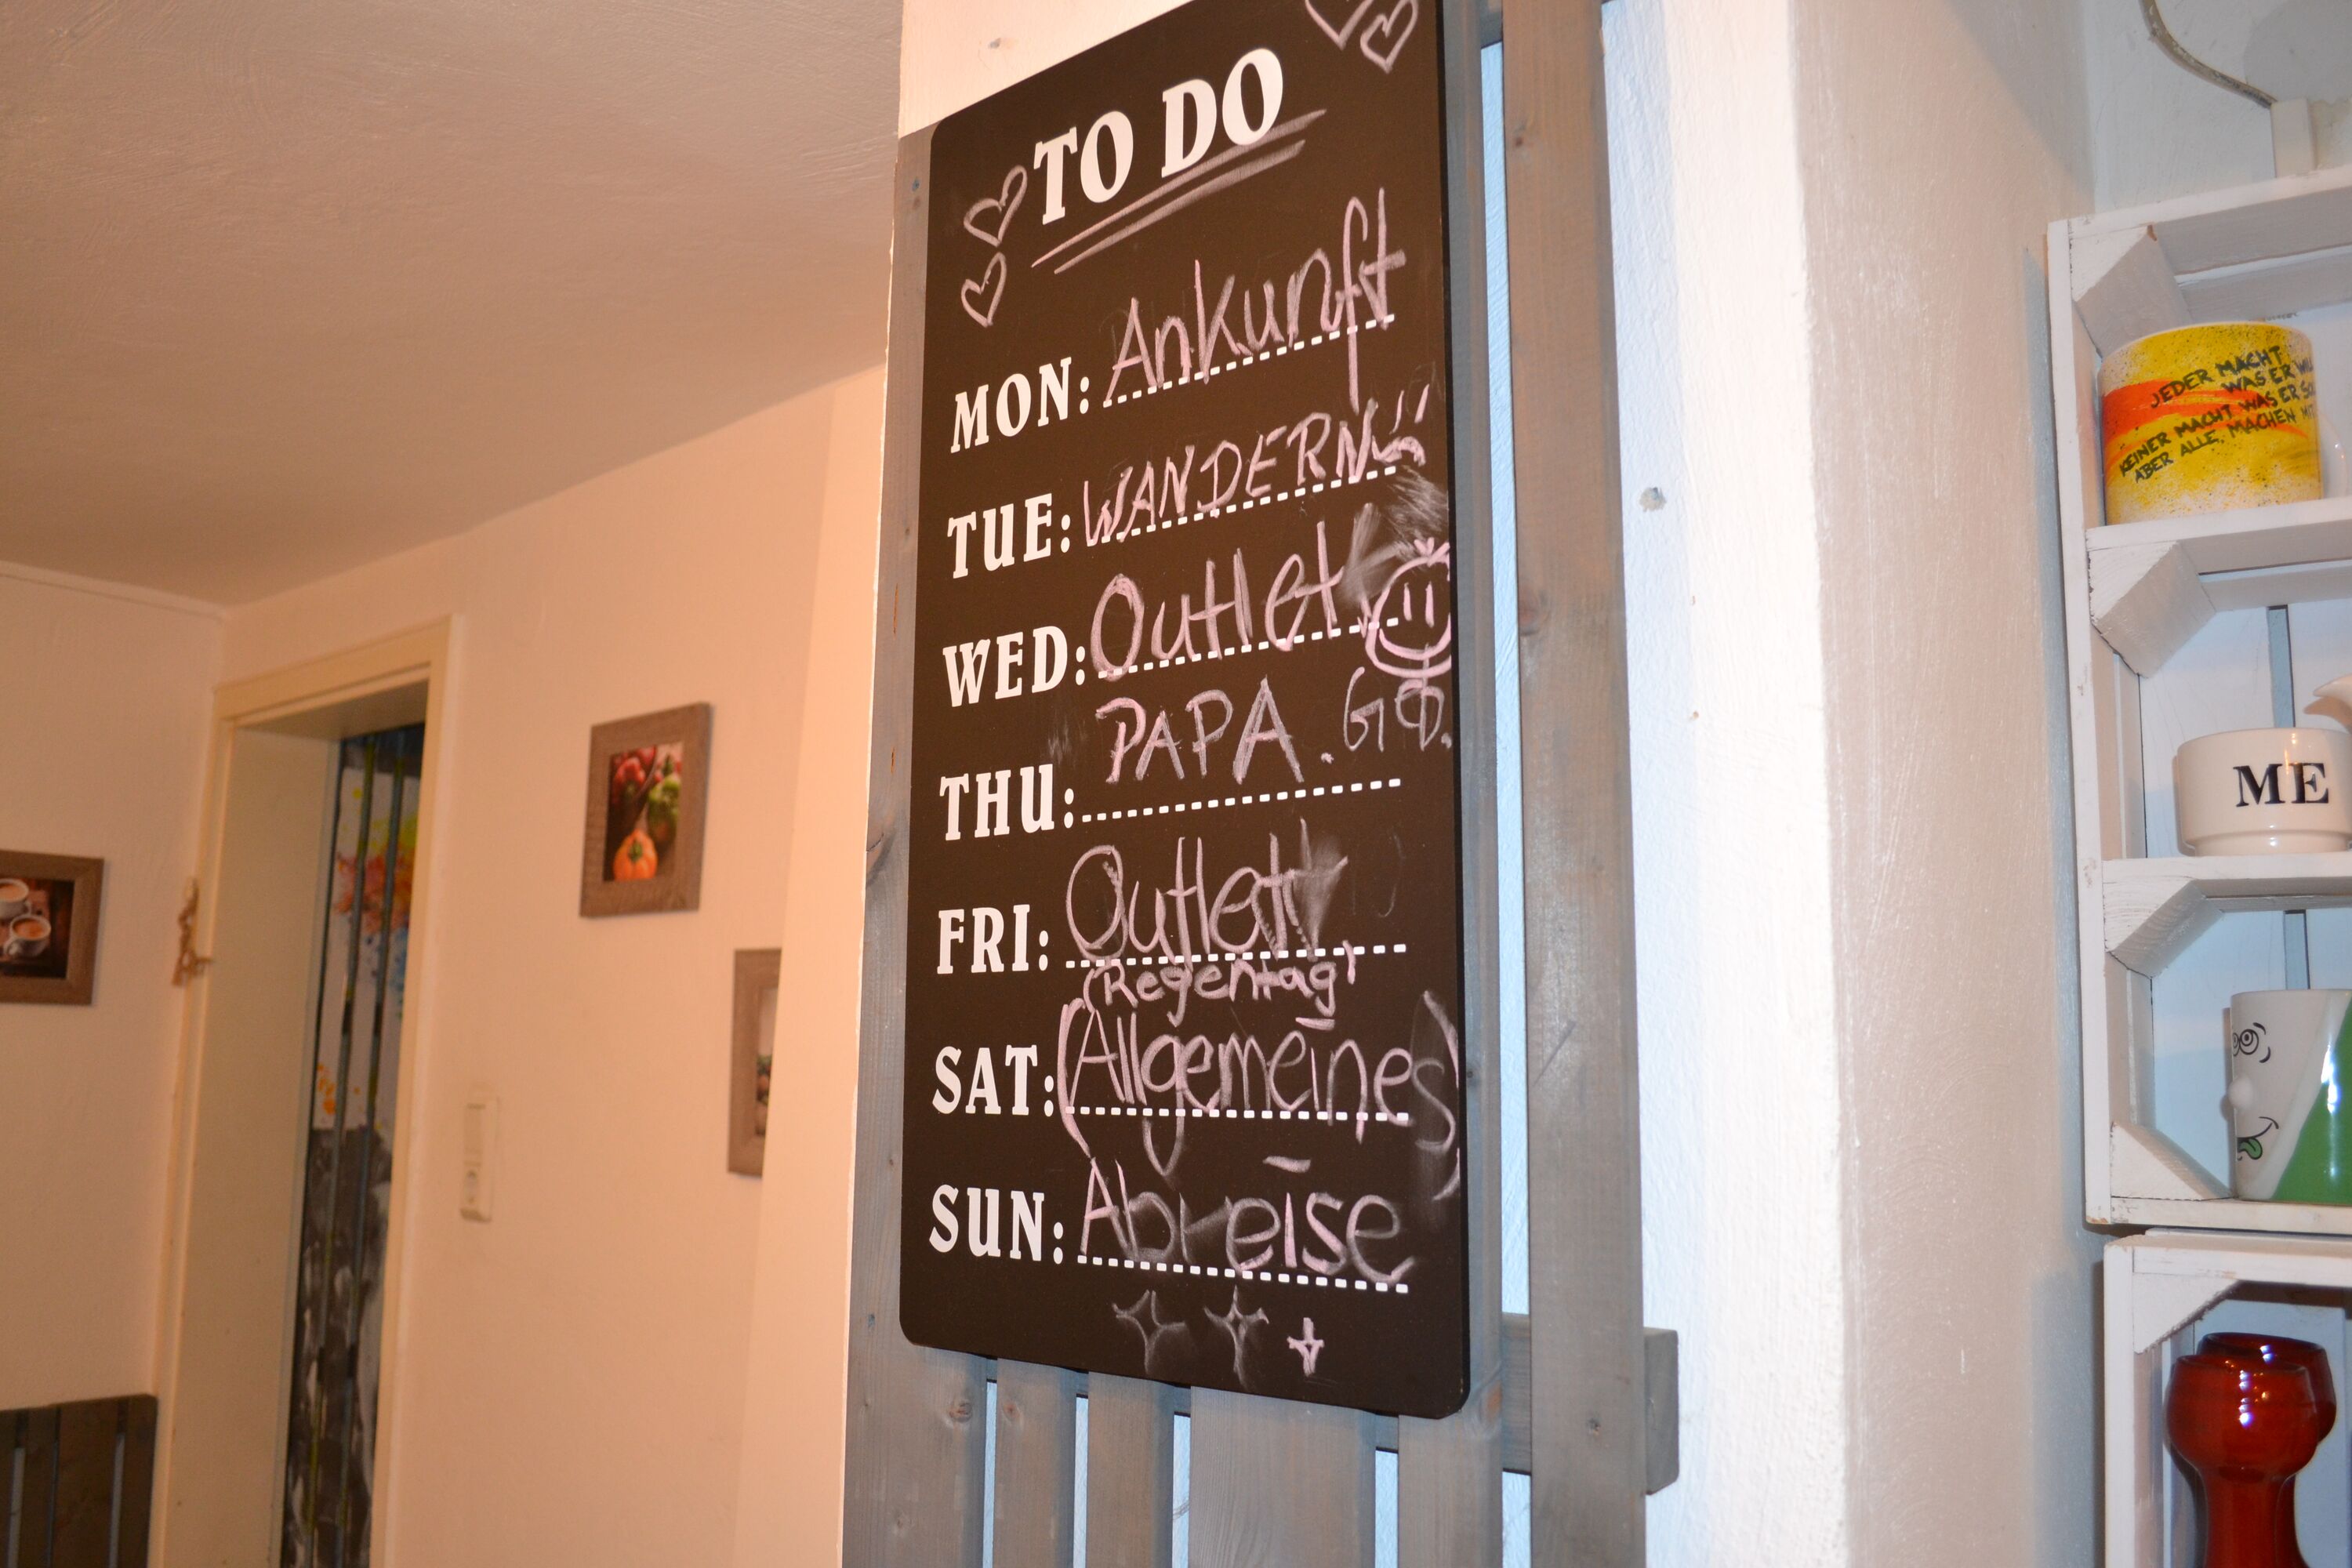 TO DO
MON: Ankunft
TUE: WANDERN
WED: Outlet
THU: PAPA.
FRI: Outlet
(Regentag)
SAT: (Allgemeines)
SUN: Abreise
JEDER MACHT,
WAS ER
KEINER MACHT WAS ER
ABER ALLE MACHEN
ME